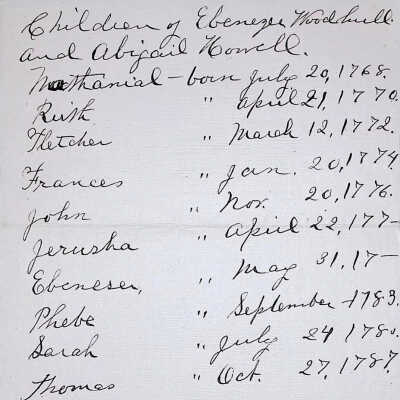 Children of Ebenezer Woodhull
and Abigail Howell.
Nathanial - born July 20, 1768.
Ruth " April 21, 1770.
Fletcher " March 12, 1772.
Frances " Jan. 20, 1774
John " Nov. 20, 1776.
Jerusha " April 22, 177-
Ebeneser, " May 31, 17-
Phebe " September - 1783.
Sarah " July 24 1780.
Thomas " Oct. 27, 1787.